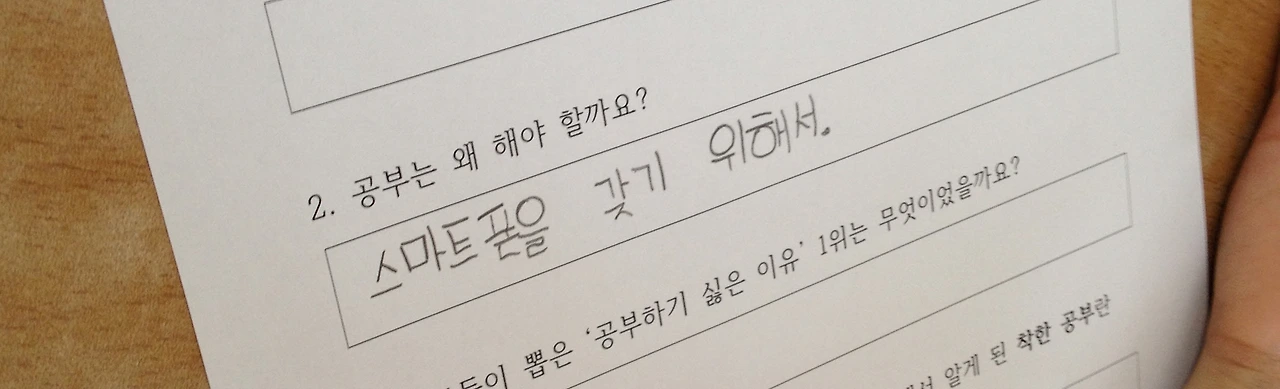 2. 공부는 왜 해야 할까요?
스마트폰을 갖기 위해서.
뽑은 '공부하기 싫은 이유' 1위는 무엇이었을까요?
알게 된 착한 공부란